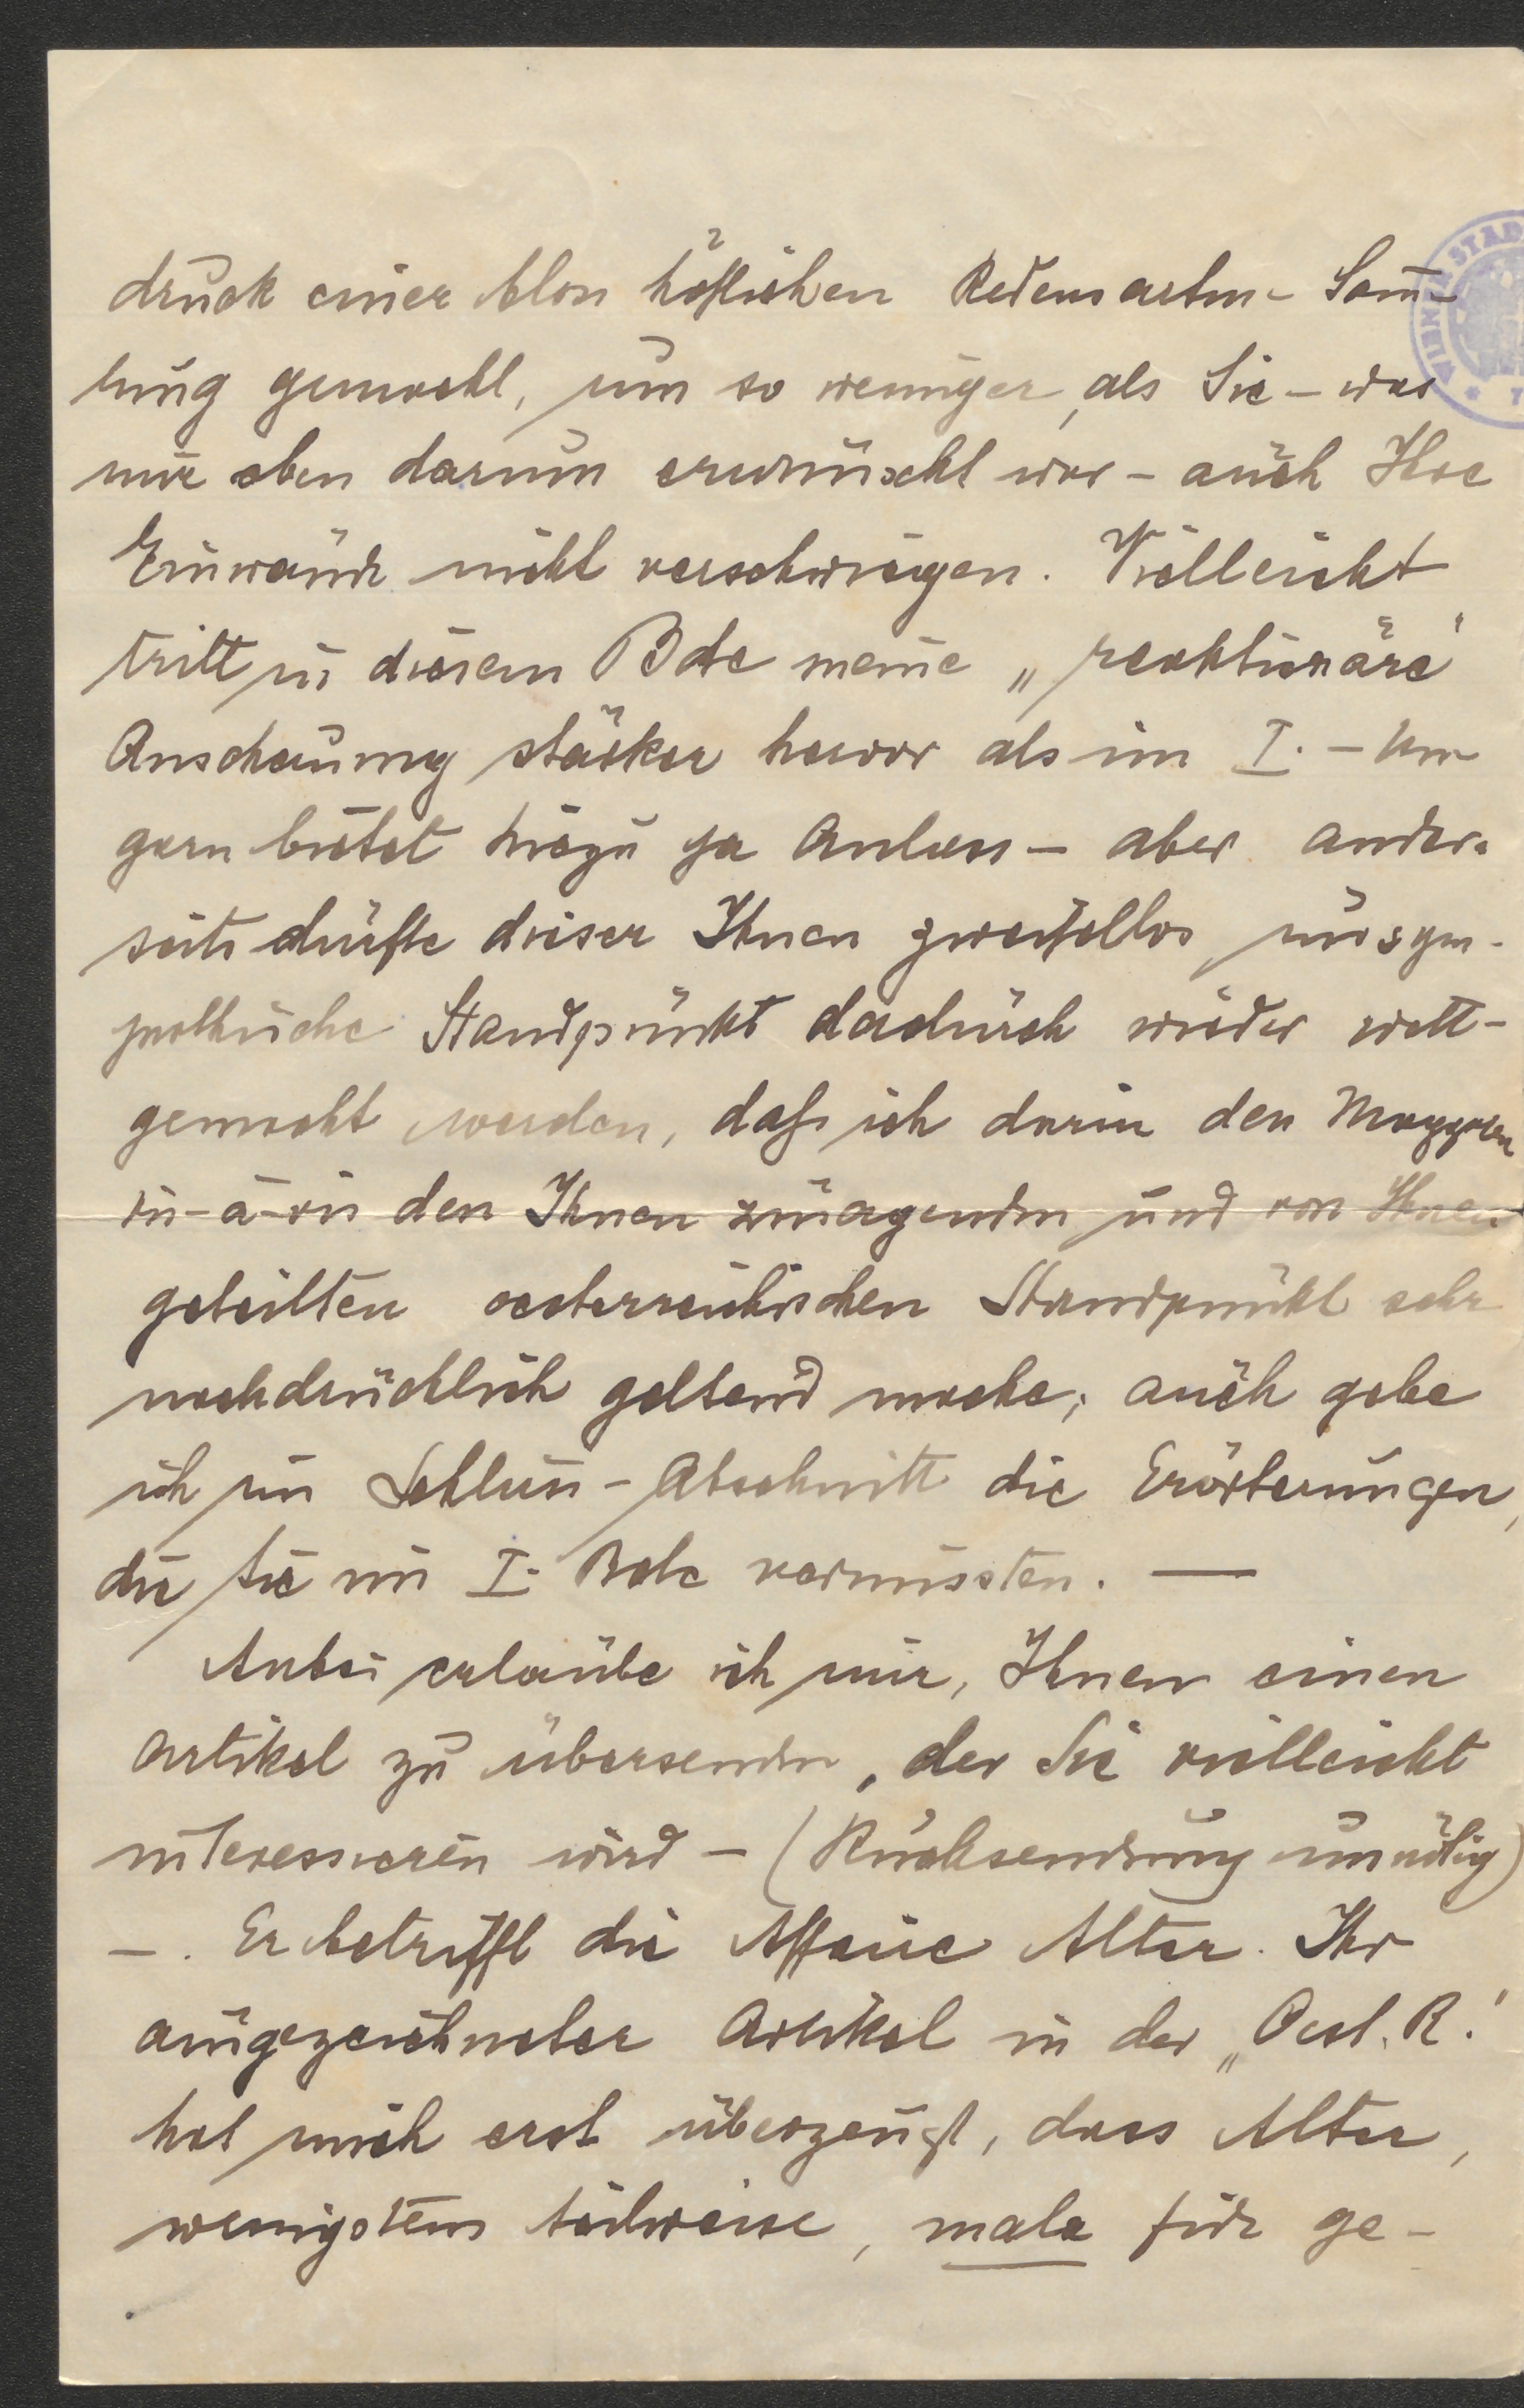 druck einer blos höflichen Redensarten-Sam̄-
lung gemacht, um so weniger, als Sie – was
mir eben darum erwünscht war – auch Ihre
Einwände nicht verschwiegen. Vielleicht
tritt in diesem Bde meine „reaktionäre"
Anschauung stärker hervor als im I. – Un
garn bietet hiezu ja Anlass – aber ander-
seits dürfte dieser Ihnen zweifellos unsym-
pathische Standpunkt dadurch wieder wett-
gemacht werden, daß ich darin den Magyaren
vis-à-vis den Ihnen zusagenden und von Ihnen
geteilten oesterreichischen Standpunkt sehr
nachdrücklich geltend mache; auch gebe
ich im Schluss-Abschnitt die Erörterungen,
die Sie im I. Bde vermissten. —
Anbei erlaube ich mir, Ihnen einen
Artikel zu übersenden, der Sie vielleicht
interessieren wird – (Rücksendung unnötig)
–. Er betrifft die Affaire Alter. Ihr
ausgezeichneter Artikel in der „Oest. R."
hat mich erst überzeugt, dass Alter,
wenigstens teilweise, mala fide ge-
WIENER STAD